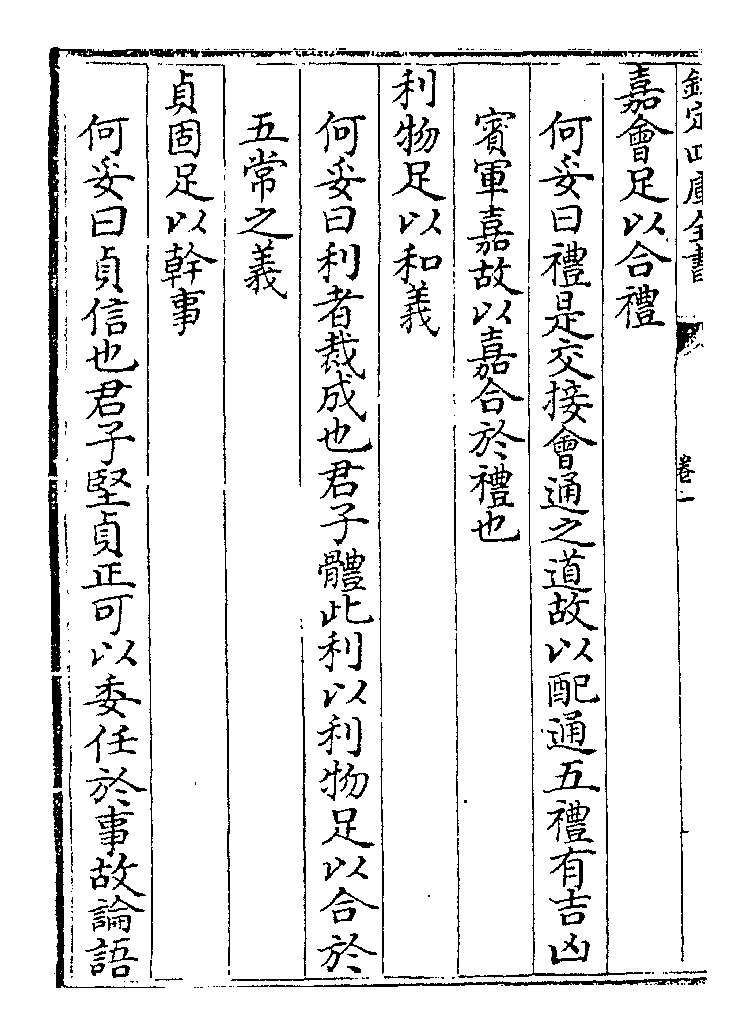 欽定四庫全書
卷一
嘉會足以合禮
何妥曰禮是交接會通之道故以配通五禮有吉凶
賓軍嘉故以嘉合於禮也
利物足以和義
何妥曰利者裁成也君子體此利以利物足以合於
五常之義
貞固足以幹事
何妥曰貞信也君子堅貞正可以委任於事故論語